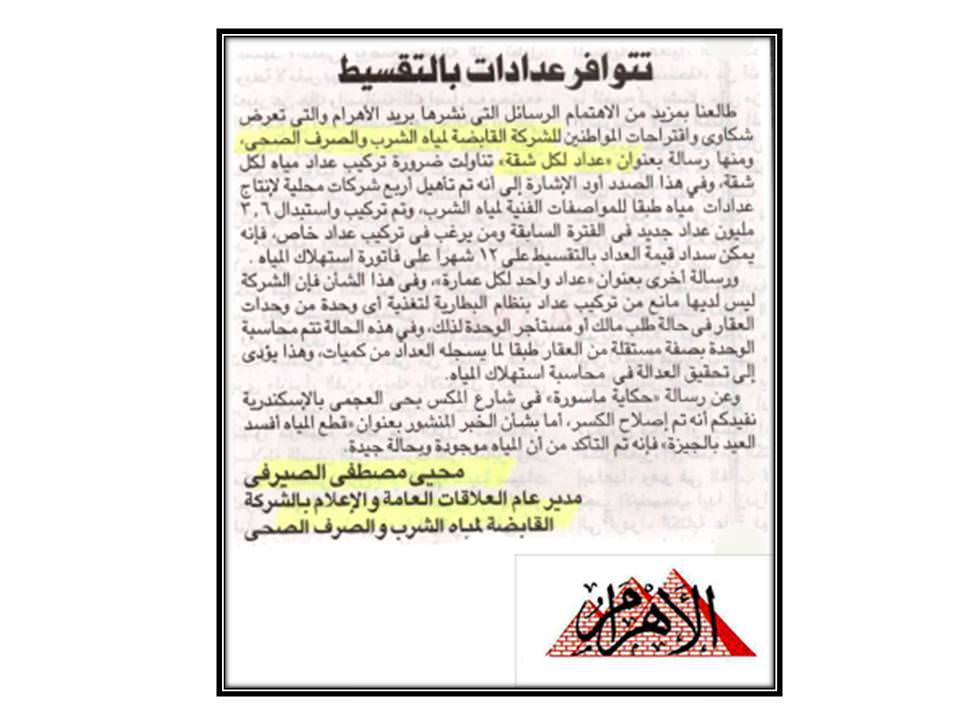 تتوافر عدادات بالتقسيط
طالعنا بمزيد من الاهتمام الرسائل التى نشرها بريد الأهرام والتى تعرض
شكاوى واقتراحات المواطنين للشركة القابضة لمياه الشرب والصرف الصحى،
ومنها رسالة بعنوان «عداد لكل شقة» تناولت ضرورة تركيب عداد مياه لكل
شقة، وفى هذا الصدد أود الإشارة إلى أنه تم تأهيل أربع شركات محلية لإنتاج
عدادات مياه طبقا للمواصفات الفنية لمياه الشرب، وتم تركيب واستبدال ٣,٦
مليون عداد جديد فى الفترة السابقة ومن يرغب فى تركيب عداد خاص، فإنه
يمكن سداد قيمة العداد بالتقسيط على ١٢ شهرا على فاتورة استهلاك المياه .
ورسالة أخرى بعنوان «عداد واحد لكل عمارة»، وفى هذا الشأن فإن الشركة
ليس لديها مانع من تركيب عداد بنظام البطارية لتغذية أى وحدة من وحدات
العقار فى حالة طلب مالك أو مستأجر الوحدة لذلك، وفى هذه الحالة تتم محاسبة
الوحدة بصفة مستقلة من العقار طبقا لما يسجله العداد من كميات، وهذا يؤدى
إلى تحقيق العدالة فى محاسبة استهلاك المياه.
وعن رسالة «حكاية ماسورة» فى شارع المكس بحى العجمى بالإسكندرية
نفيدكم أنه تم إصلاح الكسر، أما بشأن الخبر المنشور بعنوان «قطع المياه أفسد
العيد بالجيزة» فإنه تم التأكد من أن المياه موجودة وبحالة جيدة.
محيى مصطفى الصيرفى
مدير عام العلاقات العامة والإعلام بالشركة
القابضة لمياه الشرب والصرف الصحى
الأهرام